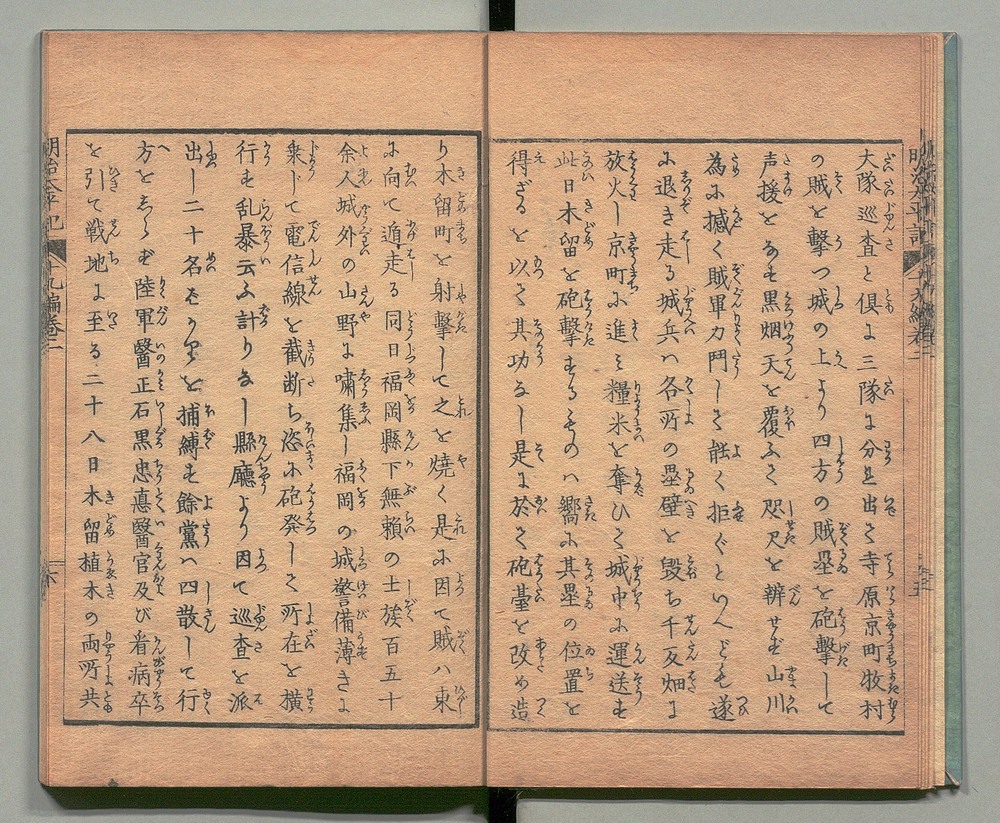 大隊巡査と倶に三隊に分れ出て寺原京町牧村
の賊を撃つ城の上より四方の賊塁を砲撃して
声援をなす黒烟天を覆ふて咫尺を辨せず山川
為に撼く賊軍力鬥して能く拒ぐといへども遂
に退き走る城兵ハ各所の塁壁を毀ち千反畑に
放火し京町に進み糧米を奪ひて城中に運送す
此日木留を砲撃するものハ嚮に其塁の位置を
得ざるを以て其功なし是に於て砲臺を改め造
り木留町を射撃して之を焼く是に因て賊ハ東
に向て遁走る同日福岡縣下無頼の士族百五十
余人城外の山野に嘯集し福岡の城警備薄きに
乗じて電信線を截断ち恣に砲発して所在を横
行す乱暴云ふ計りなし縣廳より因て巡査を派
出し二十名ばかりを捕縛す餘黨ハ四散して行
方をしらず陸軍醫正石黒忠悳醫官及び看病卒
を引て戦地に至る二十八日木留植木の両所共
明治太平記
十九編巻二